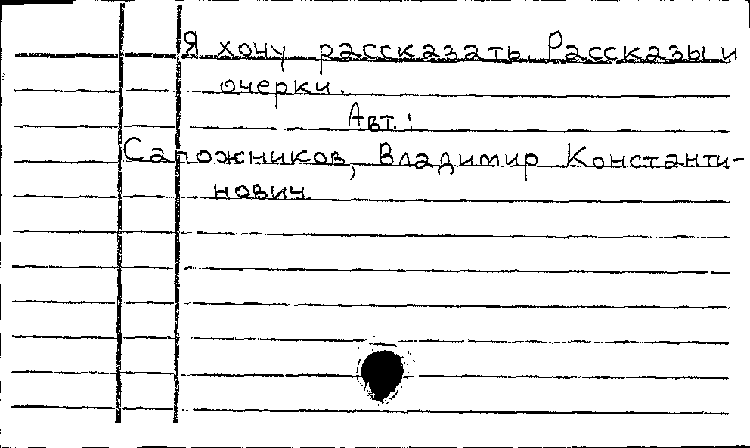 Я хочу рассказать. Рассказы и
очерки.
Авт.:
Сапожников, Владимир Константи-
нович.